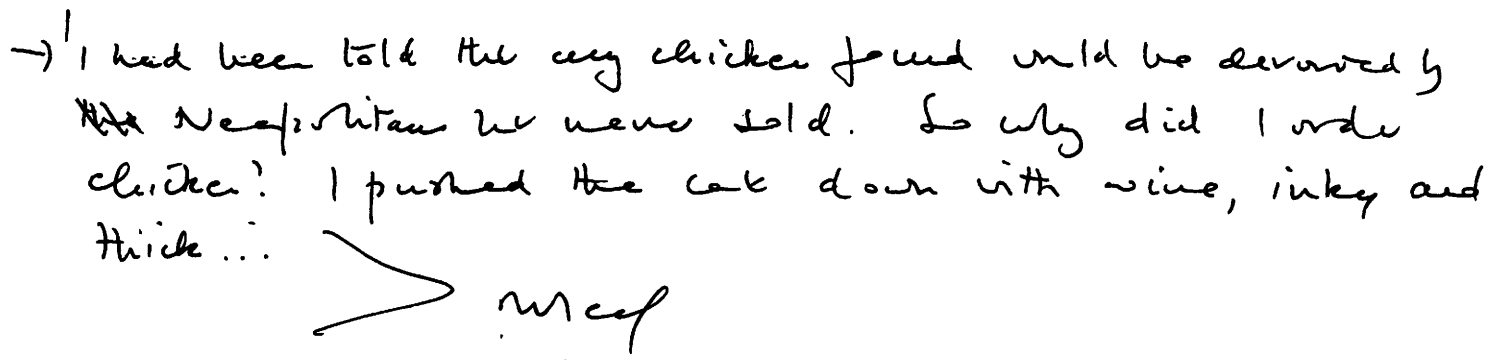 → 'I had been told that any chicken found would be devoured by
Neapolitans but never sold. So why did I order
chicken? I pushed the cat down with wine, inky and
thick...